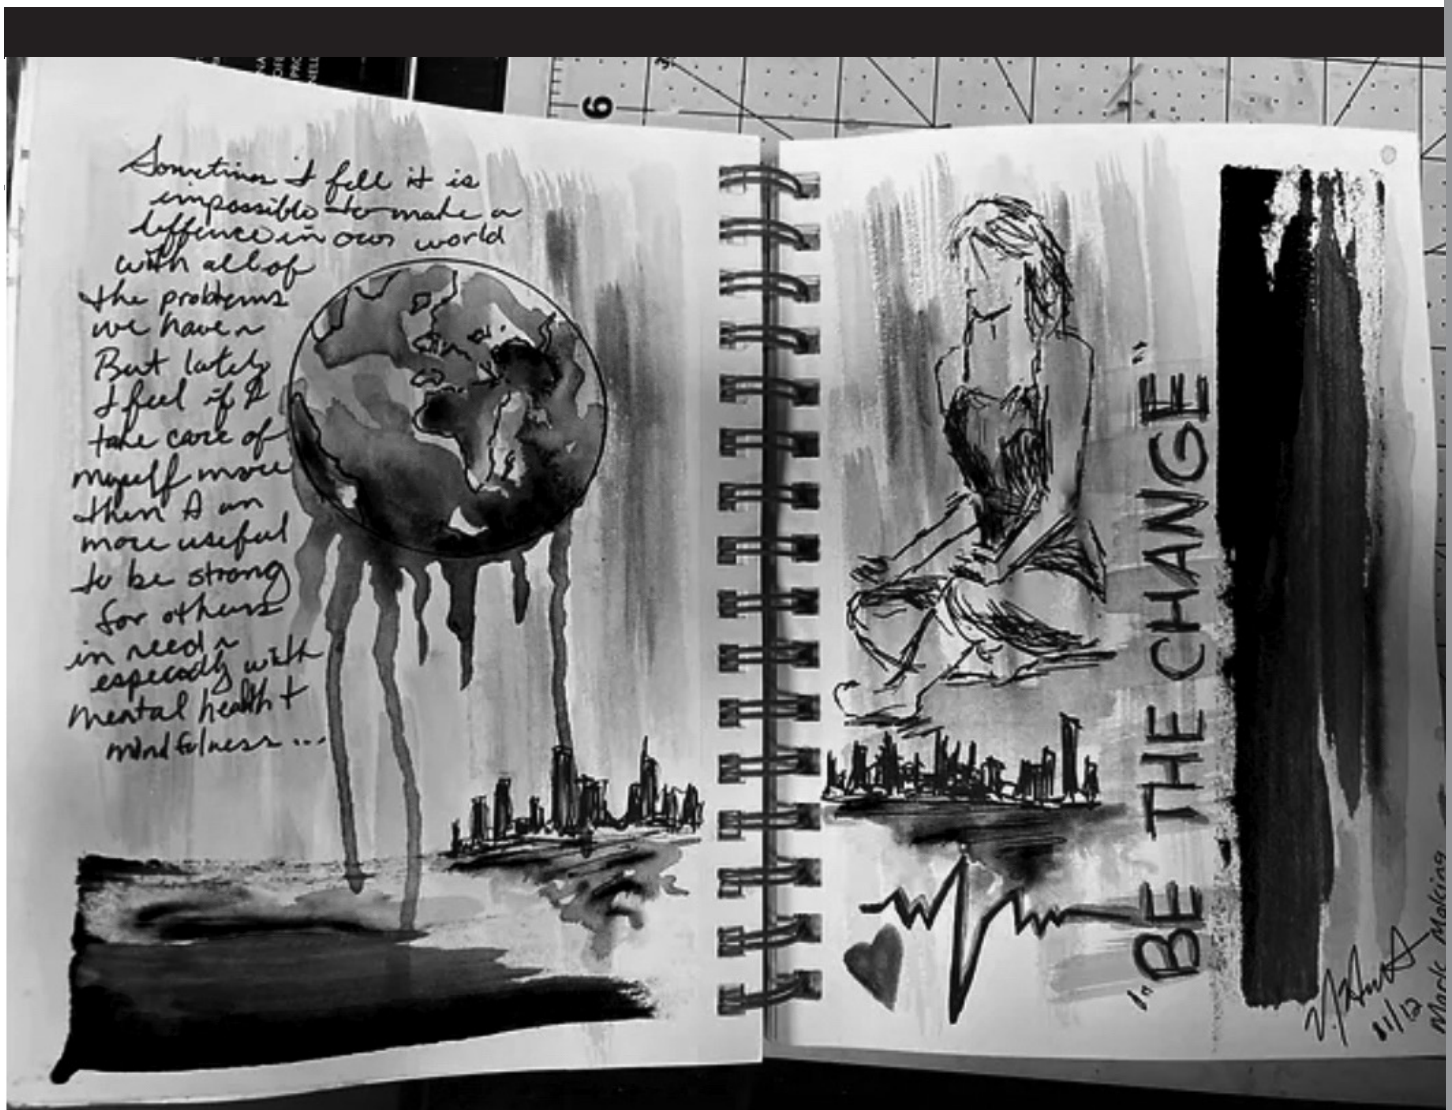 Sometimes I fell it is
impossible to make a
diffence in our world
with all of
the problems
we have ~
But lately
I feel if I
take care of
myself more
then I am
more useful
to be strong
for others
in need ~
especially with
mental health +
mindfulness...
"BE THE CHANGE"
11/12
Mark Making
6